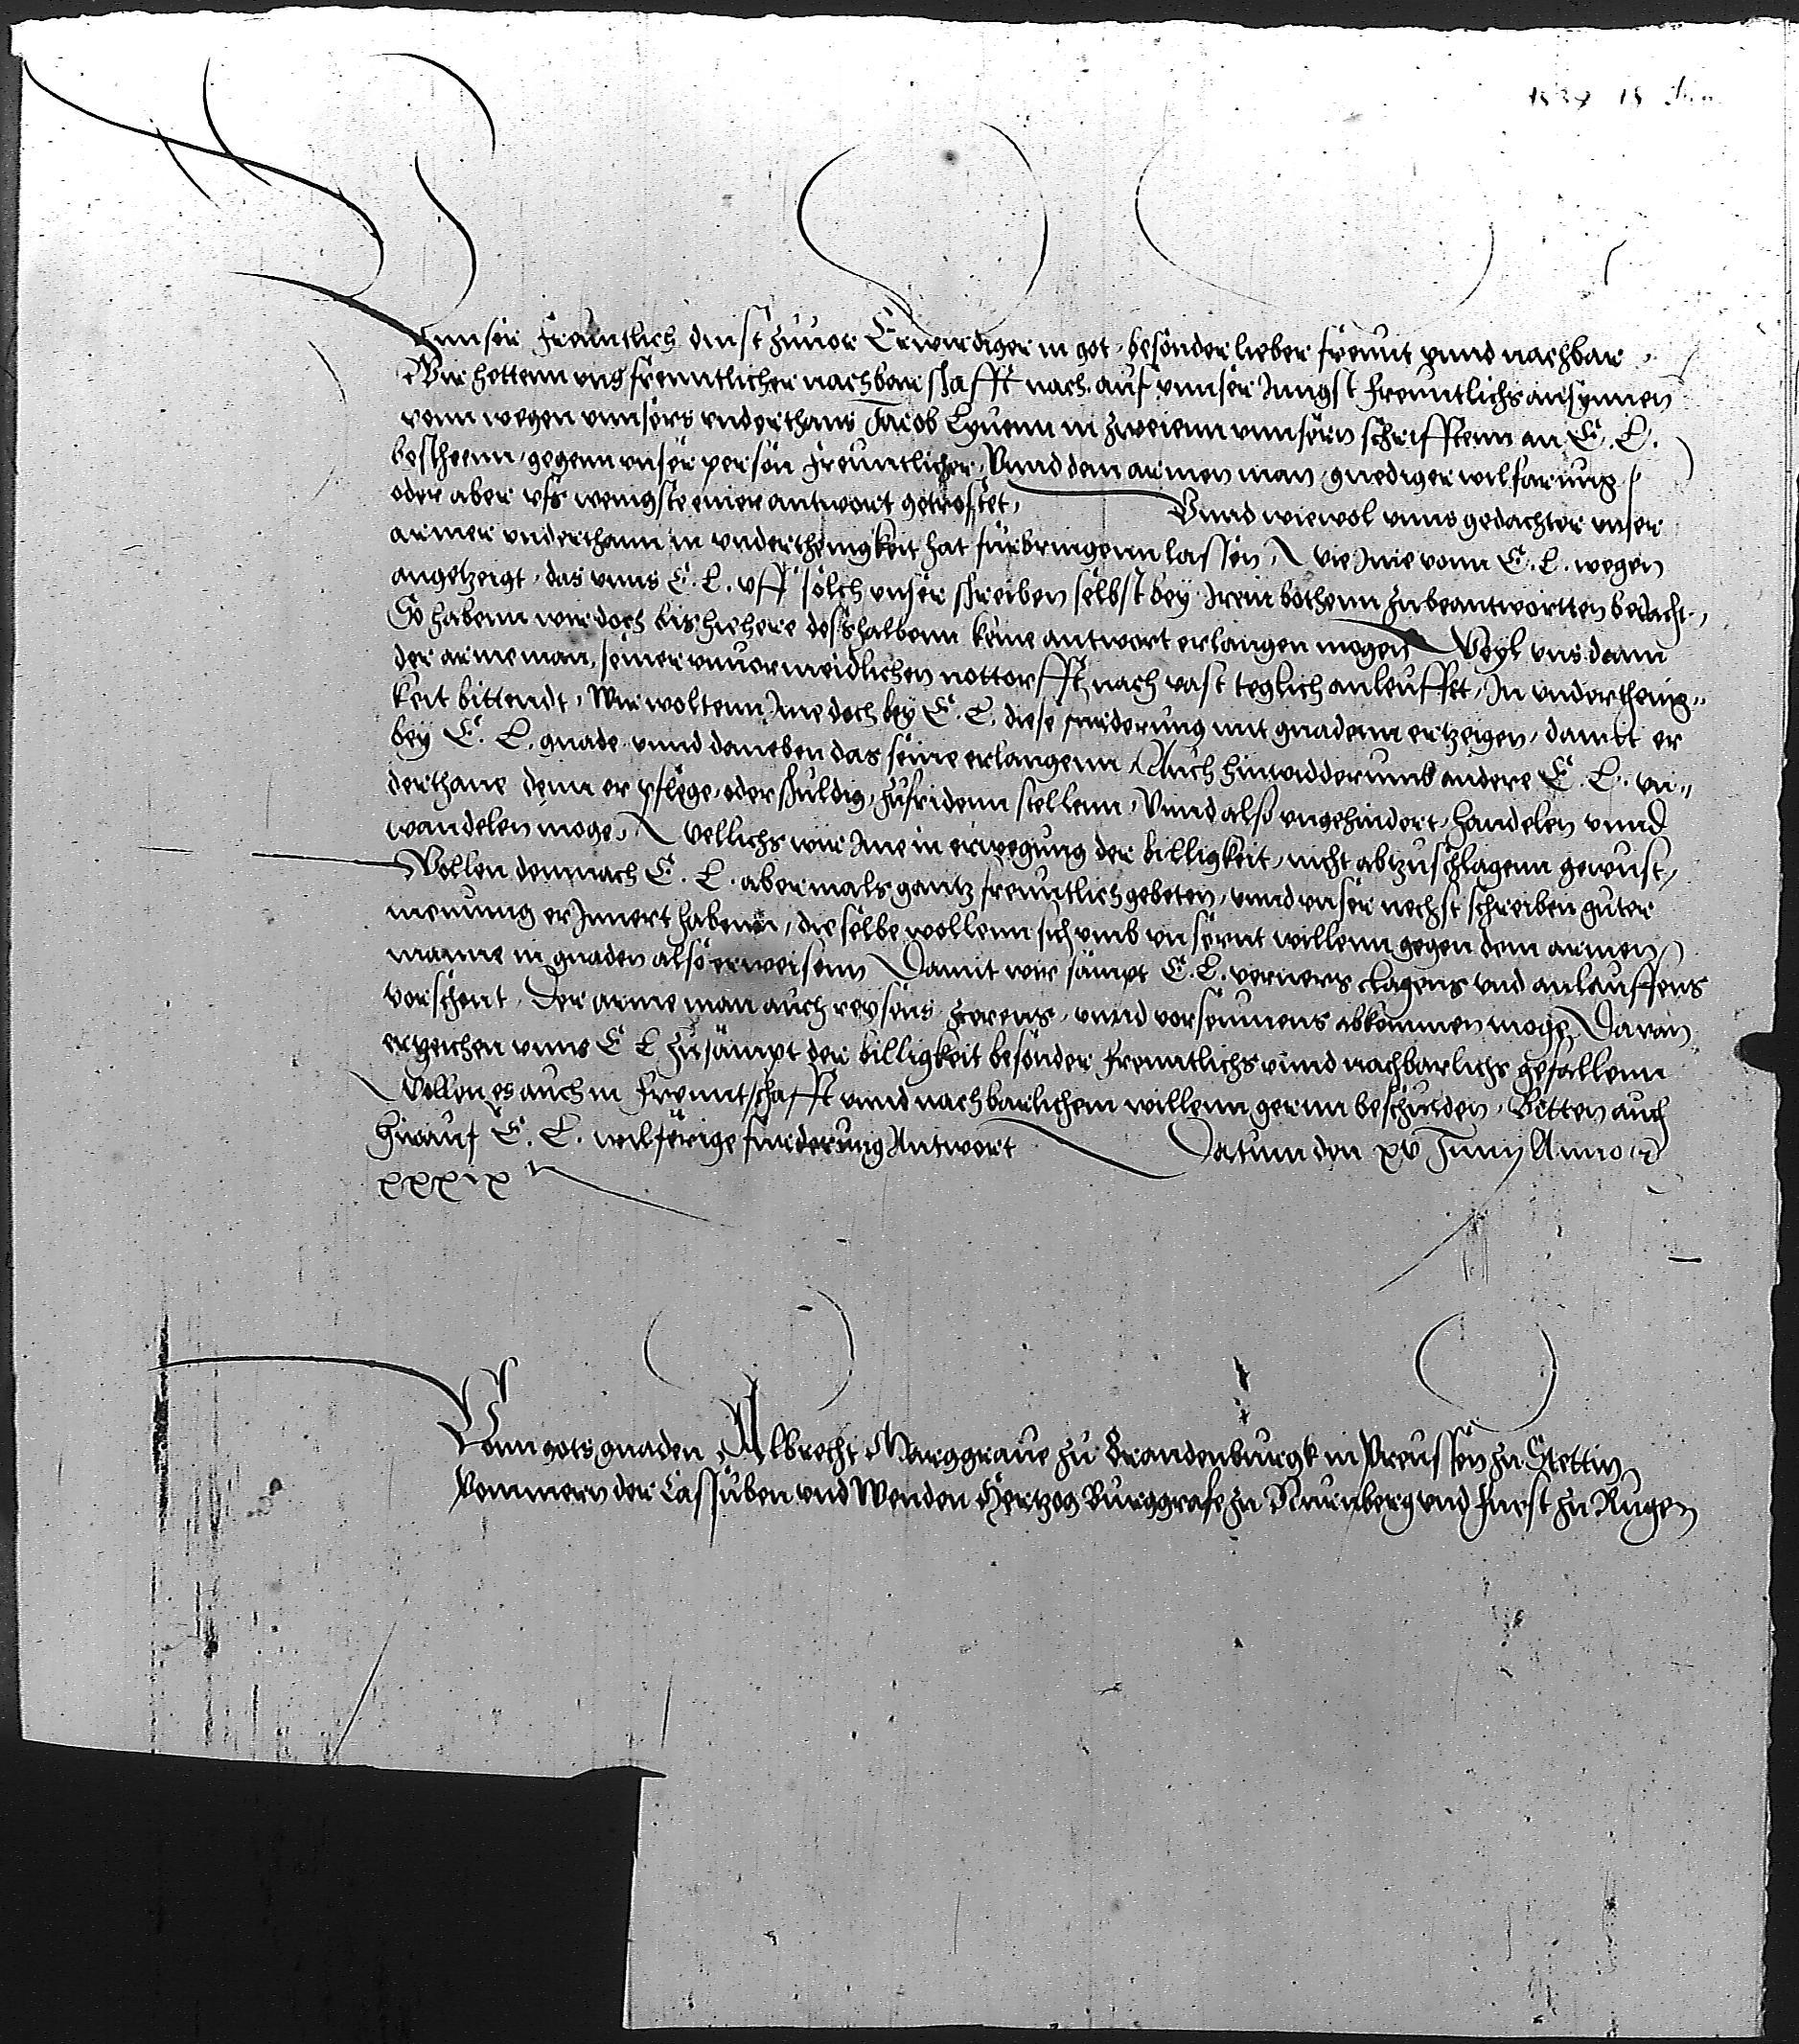 1539 15 Jun
Unnser Freuntlich dinst zuuor Erwirdiger in got, besonder lieber freunt vnnd nachbar
Wir hettenn vns freuntlicher nachbarschafft nach, auf vnnser Jungst freuntlichs ansynnen
vonn wegen vnnsers vnderthans Jacob Lyuenn in zweienn vnnsern schrifftenn an E. L.
bescheenn, gegenn vnser person freuntlicher, Vnnd dem armen man gnediger wilfarung
oder aber vfs wenigste einer antwort getrostet, Vnnd wiewol vnns gedachter vnser
armer vnderthann in vnderthenigkeit hat furbringenn lassen, Wie Ime vonn E. L. wegen
angetzeigt, das vnns E. L. vff solch vnser schreiben selbst bey Irem bothenn zubeantwortten bedacht,
So habenn wir doch bishiehere desshalbenn keine antwort erlangen mogen Weyl vns dann
der arme man, seiner vnuormeidlichen nottorfft nach vast teglich anleuffet, In vndertheinig"
keit bittendt, Wir woltenn Ime doch bey E. L. diese furderung mit gnadenn ertzeigen, damit er
bey E. L. gnade vnnd daneben das seine erlangenn Auch hinwidderumb andere E. L. vn"
derthane denn er pflege, oder schuldig, zufridenn stellenn, Vnnd also vngehindert, handelen vnnd
wandelen moge, Wellichs wir Ime in erwegung der billigkeit, nicht abtzuschlagenn gewust,
Wollen demnach E. L. abermals gantz freuntlich gebeten, vnnd vnser nechst schreiben guter
meinung erJnnert habenn, dieselbe wollenn sich vmb vnsernt willenn gegen dem armen
manne in gnaden also erweisenn Damit wir sampt E. L. verners clagens vnd anlauffens
vorschont, Der arme man auch reysens zerens, vnnd vorseumens abkommen moge, Daran
ertzeichen vnns E L zusampt der billigkeit besonder freuntlichs vnnd nachbarlichs gefallenn
Wollen es auch in freuntschafft vnnd nachbarlichem willenn gernn beschulden, Bitten auch
hirauf E. L. wilferige furderung Antwort Datum den xv Junij Anno
xxxix
Vonn gots gnaden Albrecht Marggraue zu Brandenburgk in Preussen zu Stettin
Pommern der Cassuben vnd Wenden Hertzog Burggrafe zu Nurnberg vnd Furst zu Rugen